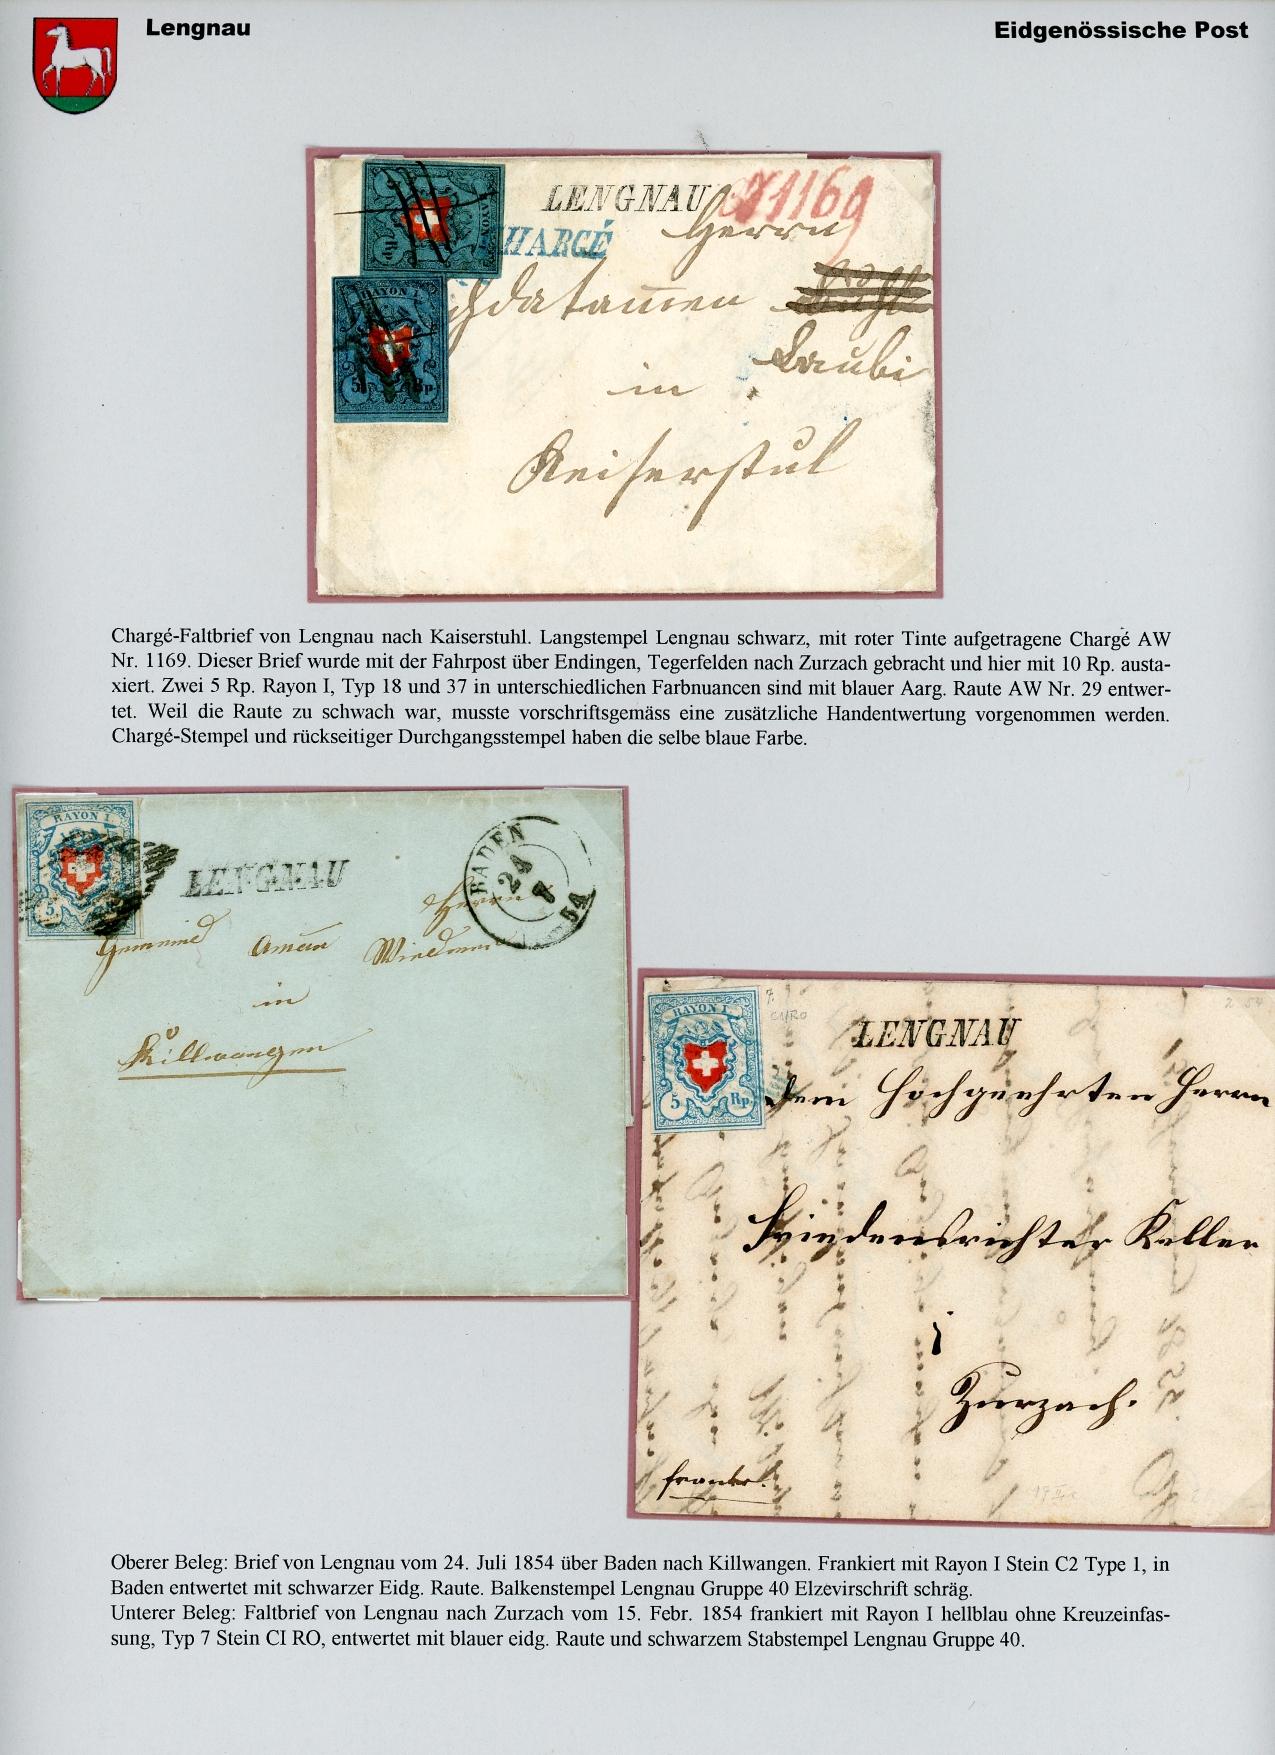 Lengnau
Eidgenössische Post
LENGNAU
1169
CHARGÉ
Herrn
RAYON I.
Laubi
in
Keiserstul
Chargé-Faltbrief von Lengnau nach Kaiserstuhl. Langstempel Lengnau schwarz, mit roter Tinte aufgetragene Chargé AW
Nr. 1169. Dieser Brief wurde mit der Fahrpost über Endingen, Tegerfelden nach Zurzach gebracht und hier mit 10 Rp. austa-
xiert. Zwei 5 Rp. Rayon I, Typ 18 und 37 in unterschiedlichen Farbnuancen sind mit blauer Aarg. Raute AW Nr. 29 entwer-
tet. Weil die Raute zu schwach war, musste vorschriftsgemäss eine zusätzliche Handentwertung vorgenommen werden.
Chargé-Stempel und rückseitiger Durchgangsstempel haben die selbe blaue Farbe.
RAYON I.
5
LENGNAU
BADEN
24
7
54
Herrn
Gemeind Aman
in
Killwangen
RAYON I.
5 Rp.
LENGNAU
Dem Hochgeehrten Herrn
Friedensrichter Keller
i
Zurzach.
franko.
Oberer Beleg: Brief von Lengnau vom 24. Juli 1854 über Baden nach Killwangen. Frankiert mit Rayon I Stein C2 Type 1, in
Baden entwertet mit schwarzer Eidg. Raute. Balkenstempel Lengnau Gruppe 40 Elzevirschrift schräg.
Unterer Beleg: Faltbrief von Lengnau nach Zurzach vom 15. Febr. 1854 frankiert mit Rayon I hellblau ohne Kreuzeinfas-
sung, Typ 7 Stein CI RO, entwertet mit blauer eidg. Raute und schwarzem Stabstempel Lengnau Gruppe 40.